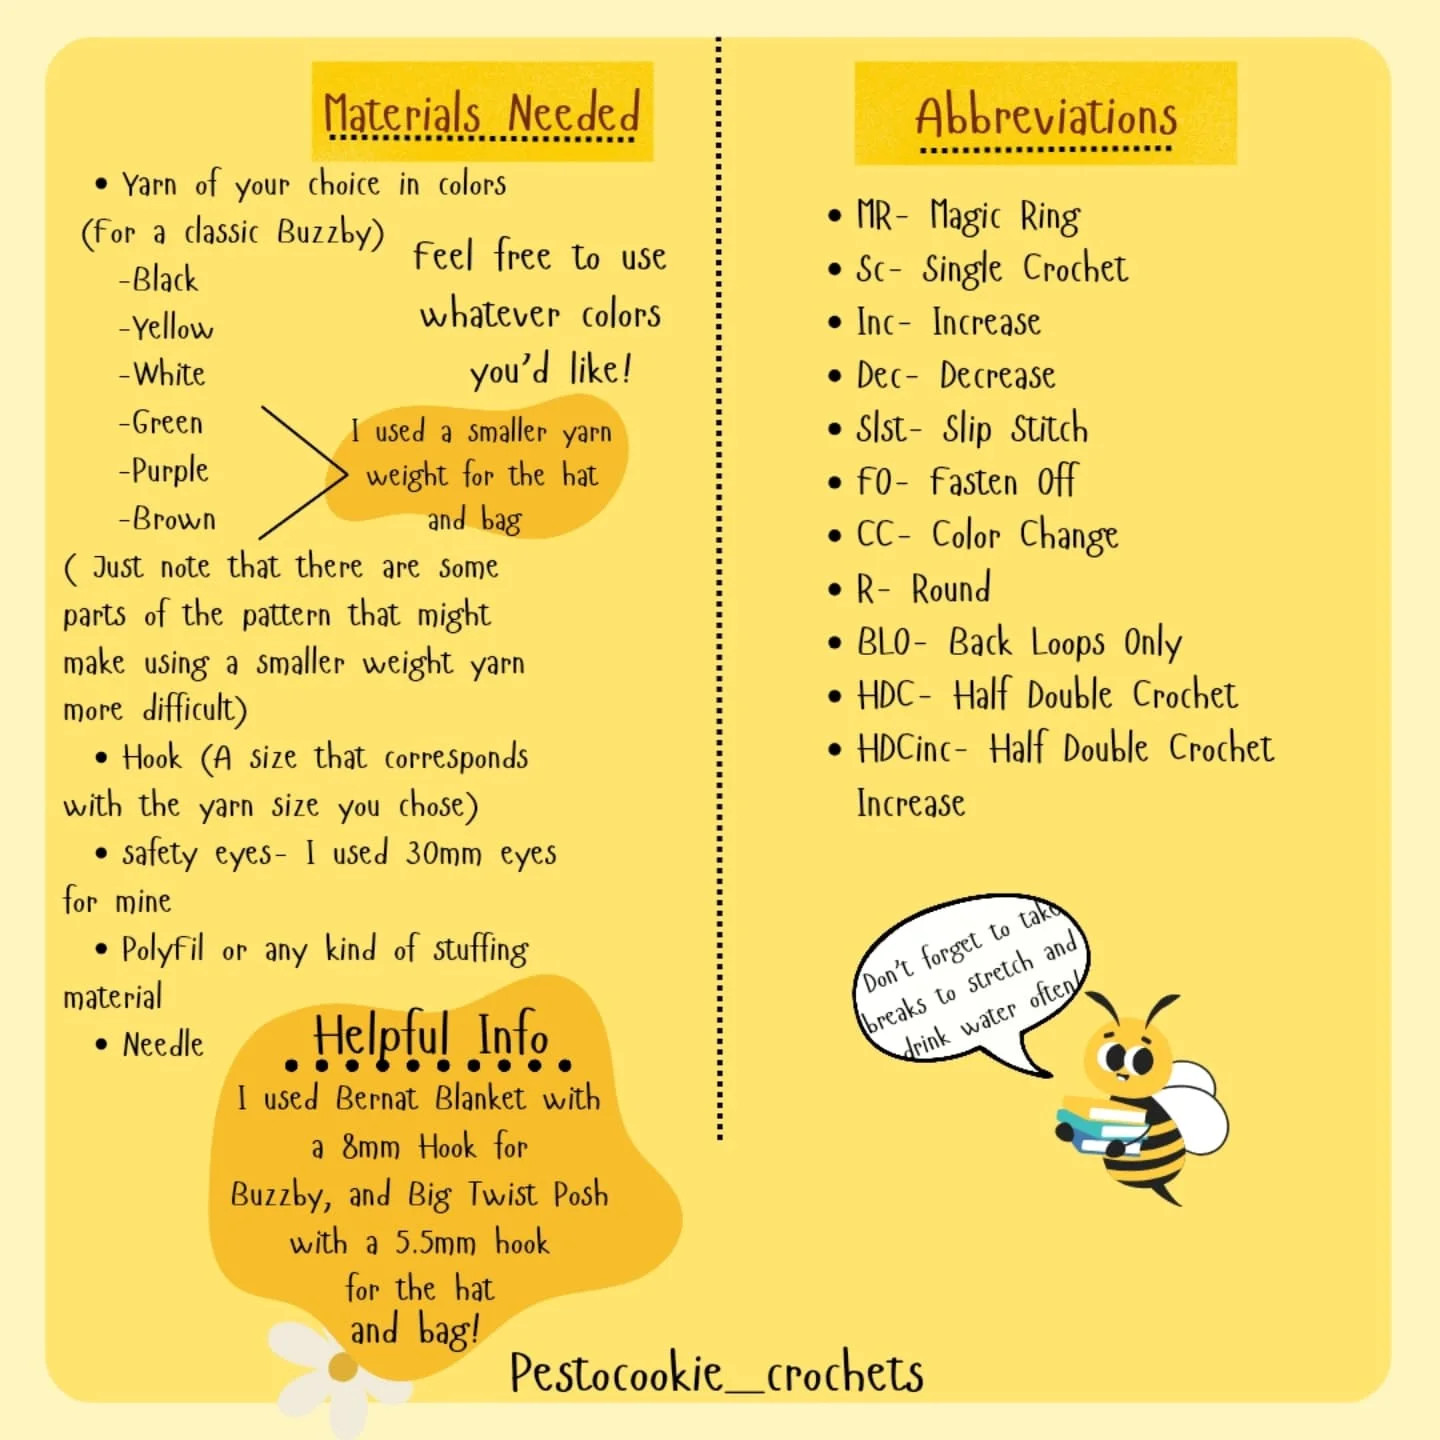 Materials Needed
• Yarn of your choice in colors
(For a classic Buzzby)
-Black
-Yellow
-White
-Green
-Purple
-Brown
Feel free to use
whatever colors
you'd like!
I used a smaller yarn
weight for the hat
and bag
( Just note that there are some
parts of the pattern that might
make using a smaller weight yarn
more difficult)
• Hook (A size that corresponds
with the yarn size you chose)
• safety eyes- I used 30mm eyes
for mine
• PolyFil or any kind of stuffing
material
• Needle
Helpful Info
I used Bernat Blanket with
a 8mm Hook for
Buzzby, and Big Twist Posh
with a 5.5mm hook
for the hat
and bag!
Abbreviations
• MR- Magic Ring
• Sc- Single Crochet
• Inc- Increase
• Dec- Decrease
• Slst- Slip Stitch
• FO- Fasten Off
• CC- Color Change
• R- Round
• BLO- Back Loops Only
• HDC- Half Double Crochet
• HDCinc- Half Double Crochet
Increase
Don't forget to take
breaks to stretch and
drink water often!
Pestocookie_crochets